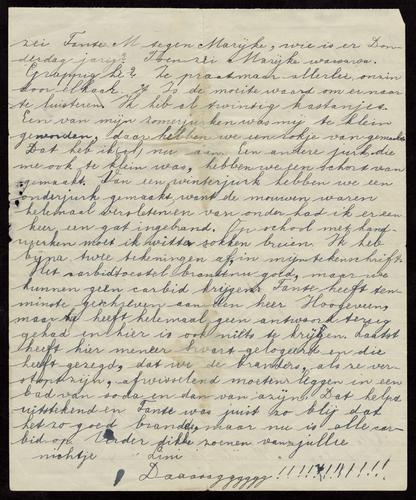 zei Tante M tegen Marijke, wie is er Don-
derdag jarig? Toen zei Marijke wawawa.
Grappig hè? Ze praat maar allerlei onzin
door elkaar. 't Is de moeite waard om er naar
te luisteren. Ik heb al twintig kastanjes.
Een van mijn zomerjurken was mij te klein
geworden, daar hebben we een rokje van gemaakt
Dat heb ik nu aan. Een andere jurk, die
me ook te klein was, hebben we een schort van
gemaakt. Van een winterjurk hebben we een
onderjurk gemaakt, want de mouwen waren
helemaal versleten en van onder had ik er een
hier een gat ingebrand. Op school met hand-
werken moet ik witte sokken breien. Ik heb
bijna twee tekeningen af in mijn tekenschrift.
Het carbidtoestel brandt nu goed, maar we
kunnen geen carbid krijgen. Tante heeft ten-
minste geschreven aan den heer Hoogeveen,
maar ze heeft helemaal geen antwoord terug
gehad en hier is ook niets te krijgen. Laatst
heeft hier meneer Kwast gelogeerd en die
heeft gezegd, dat we de branders, als ze ver-
stopt zijn, afwisselend moeten leggen in een
bad van soda en dan van azijn. Dat helpt
uitstekend en Tante was juist zo blij dat
het zo goed brandde, maar nu is alle car-
bid op. Verder dikke zoenen van jullie
nichtje Lini
Daaaagggggg!!!!!!!!!!!